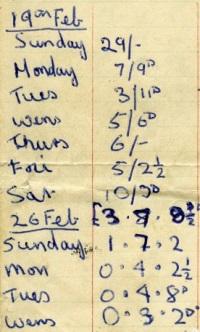 19th Feb
Sunday 29/-
Monday 7/9D
Tues 3/11D
Wens 5/6D
Thurs 6/-
Fri 5/2½
Sat 10/3D
26 Feb £3.8.8½
Sunday 1.7.2
Mon 0.4.2½
Tues 0.4.8D
Wens 0.3.2D